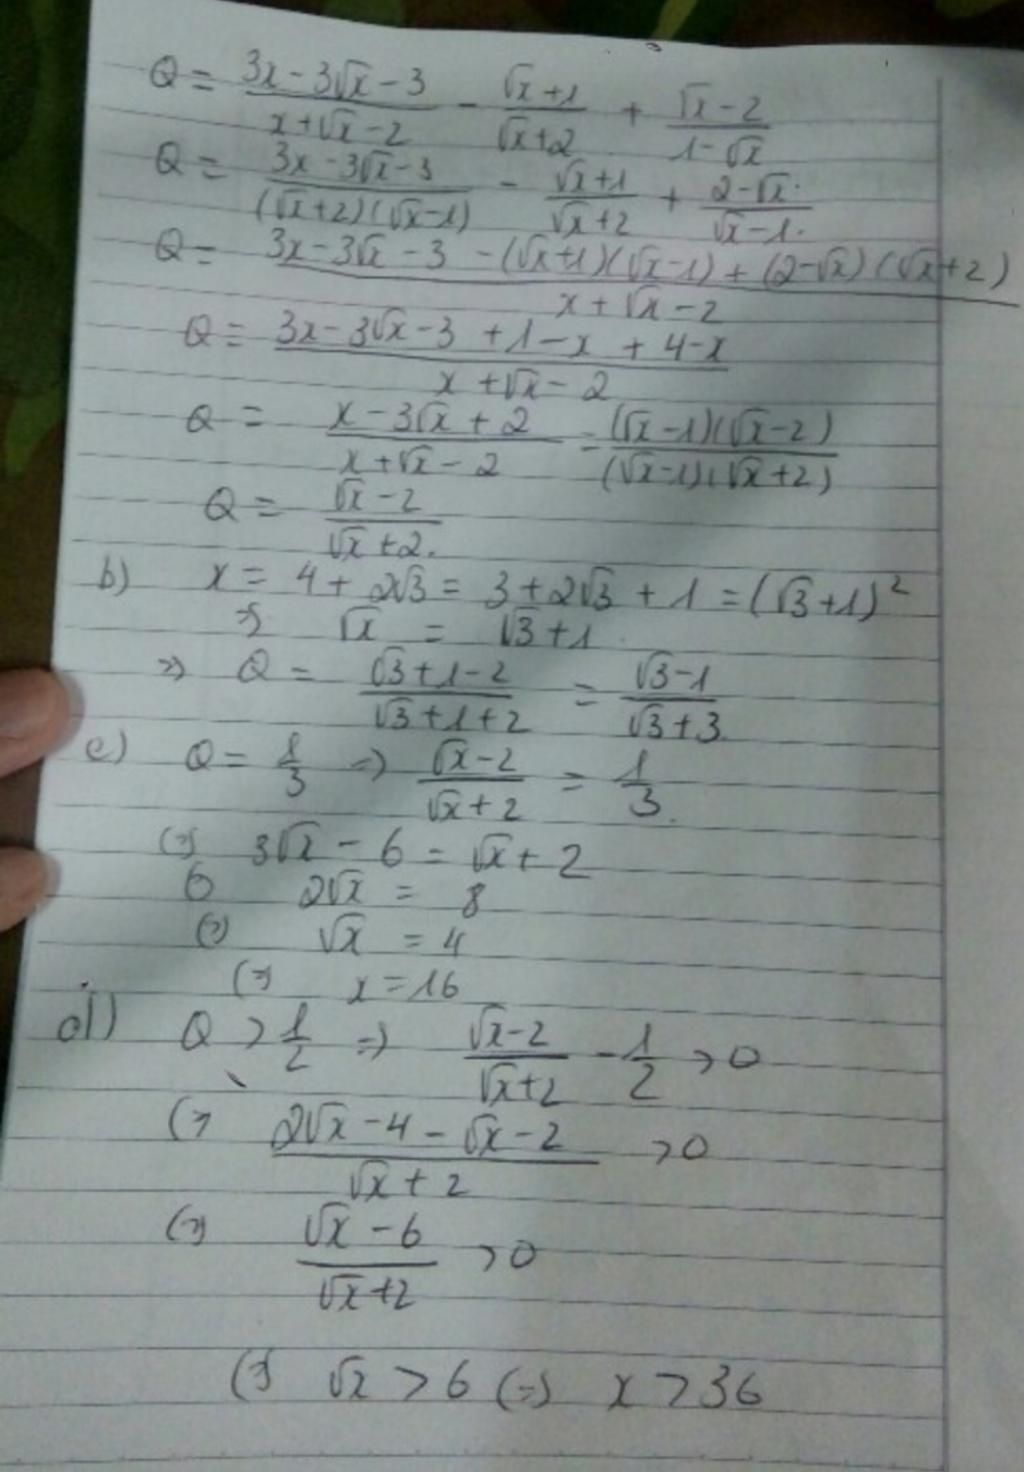 Q = (3x - 3√x - 3)/(x + √x - 2) - (√x + 1)/(√x + 2) + (√x - 2)/(1 - √x)
Q = (3x - 3√x - 3)/((√x + 2)(√x - 1)) - (√x + 1)/(√x + 2) + (2 - √x)/(√x - 1)
Q = (3x - 3√x - 3 - (√x + 1)(√x - 1) + (2 - √x)(√x + 2))/(x + √x - 2)
Q = (3x - 3√x - 3 + 1 - x + 4 - x)/(x + √x - 2)
Q = (x - 3√x + 2)/(x + √x - 2) = ((√x - 1)(√x - 2))/((√x - 1)(√x + 2))
Q = (√x - 2)/(√x + 2).
b) x = 4 + 2√3 = 3 + 2√3 + 1 = (√3 + 1)²
⇒ √x = √3 + 1
⇒ Q = (√3 + 1 - 2)/(√3 + 1 + 2) = (√3 - 1)/(√3 + 3)
c) Q = 1/3 ⇒ (√x - 2)/(√x + 2) = 1/3.
⇔ 3√x - 6 = √x + 2
⇔ 2√x = 8
⇔ √x = 4
⇔ x = 16
d) Q > 1/2 ⇒ (√x - 2)/(√x + 2) - 1/2 > 0
⇔ (2√x - 4 - √x - 2)/(√x + 2) > 0
⇔ (√x - 6)/(√x + 2) > 0
⇔ √x > 6 ⇔ x > 36